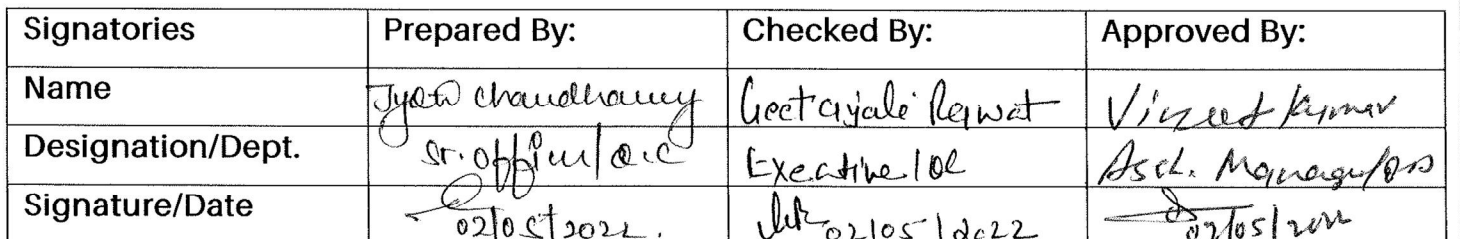 Signatories Prepared By: Checked By: Approved By:
Name Jyoti chaudhary Geetanjali Rawat Vineet Kumar
Designation/Dept. Sr. Officer/Q.C Executive/QC Asst. Manager/
Signature/Date 02/05/2022. 02/05/2022 02/05/2022